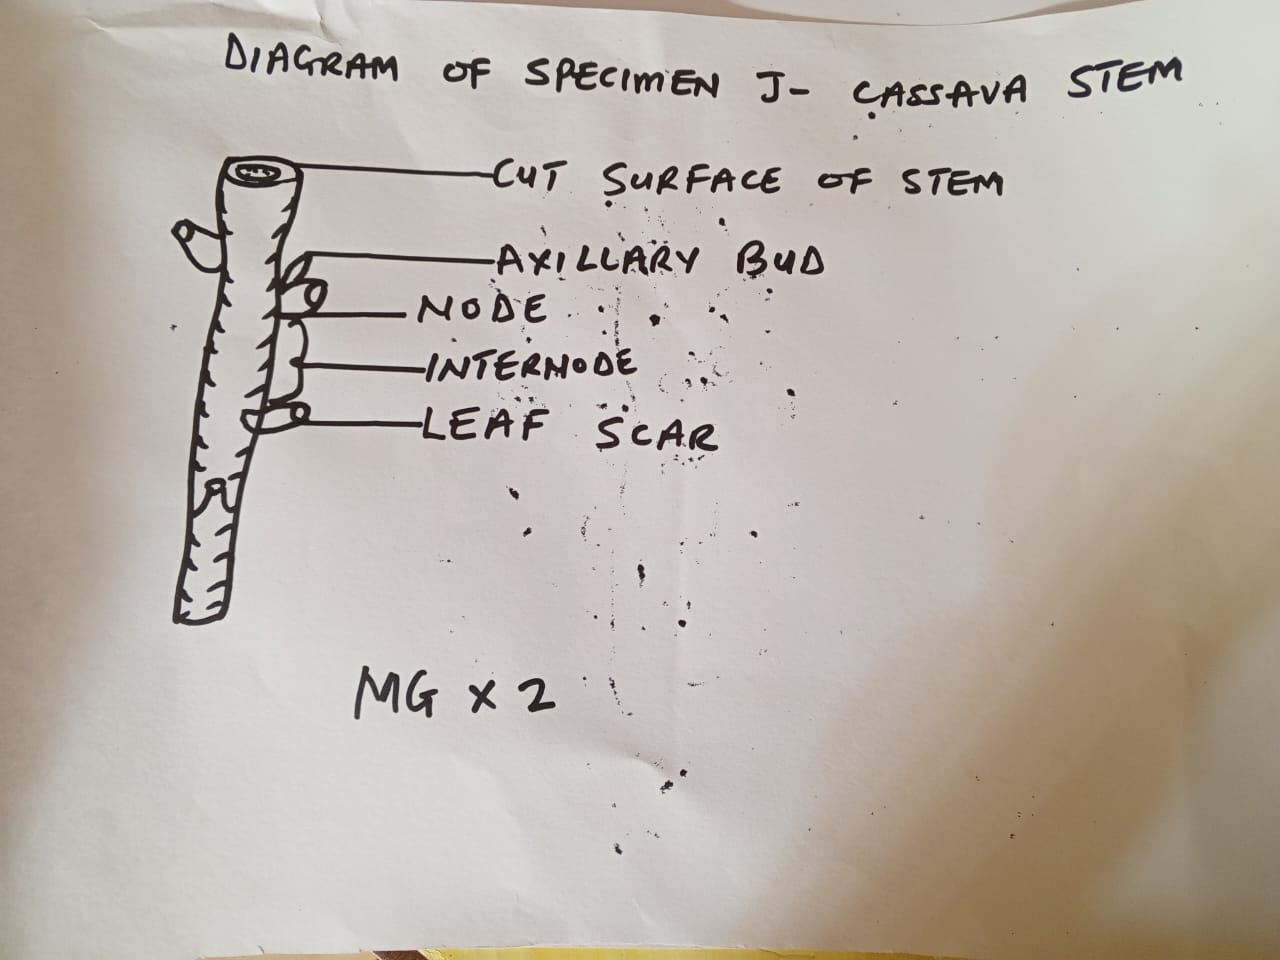 DIAGRAM OF SPECIMEN J- CASSAVA STEM
CUT SURFACE OF STEM
AXILLARY BUD
NODE
INTERNODE
LEAF SCAR
MG x 2